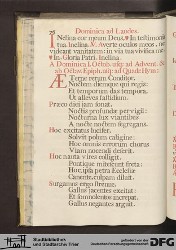 Dominica ad Laudes.
Inclina cor meum Deus, in testimonia
tua. Inclina. V. Averte oculos meos, ne
videant vanitatem: in via tua vivifica
me. Gloria Patri. Inclina.
Æterne rerum Conditor,
Noctem diemque qui regis
Et temporum das tempora,
Ut alleves fastidium.
Præco diei jam sonat,
Noctis profundæ pervigil:
Nocturna lux viantibus
A nocte noctem segregans.
Hoc excitatus lucifer,
Solvit polum caligine:
Hoc omnis erronum chorus
Viam nocendi deserit.
Hoc nauta vires colligit,
Pontique mitescunt freta:
Hoc, ipsa petra Ecclesiæ
Canente, culpam diluit.
Surgamus ergo strenue:
Gallus jacentes excitat:
Et somnolentos increpat,
Gallus negantes arguit.
Stadtbibliothek
Stadtarchiv Trier
DFG